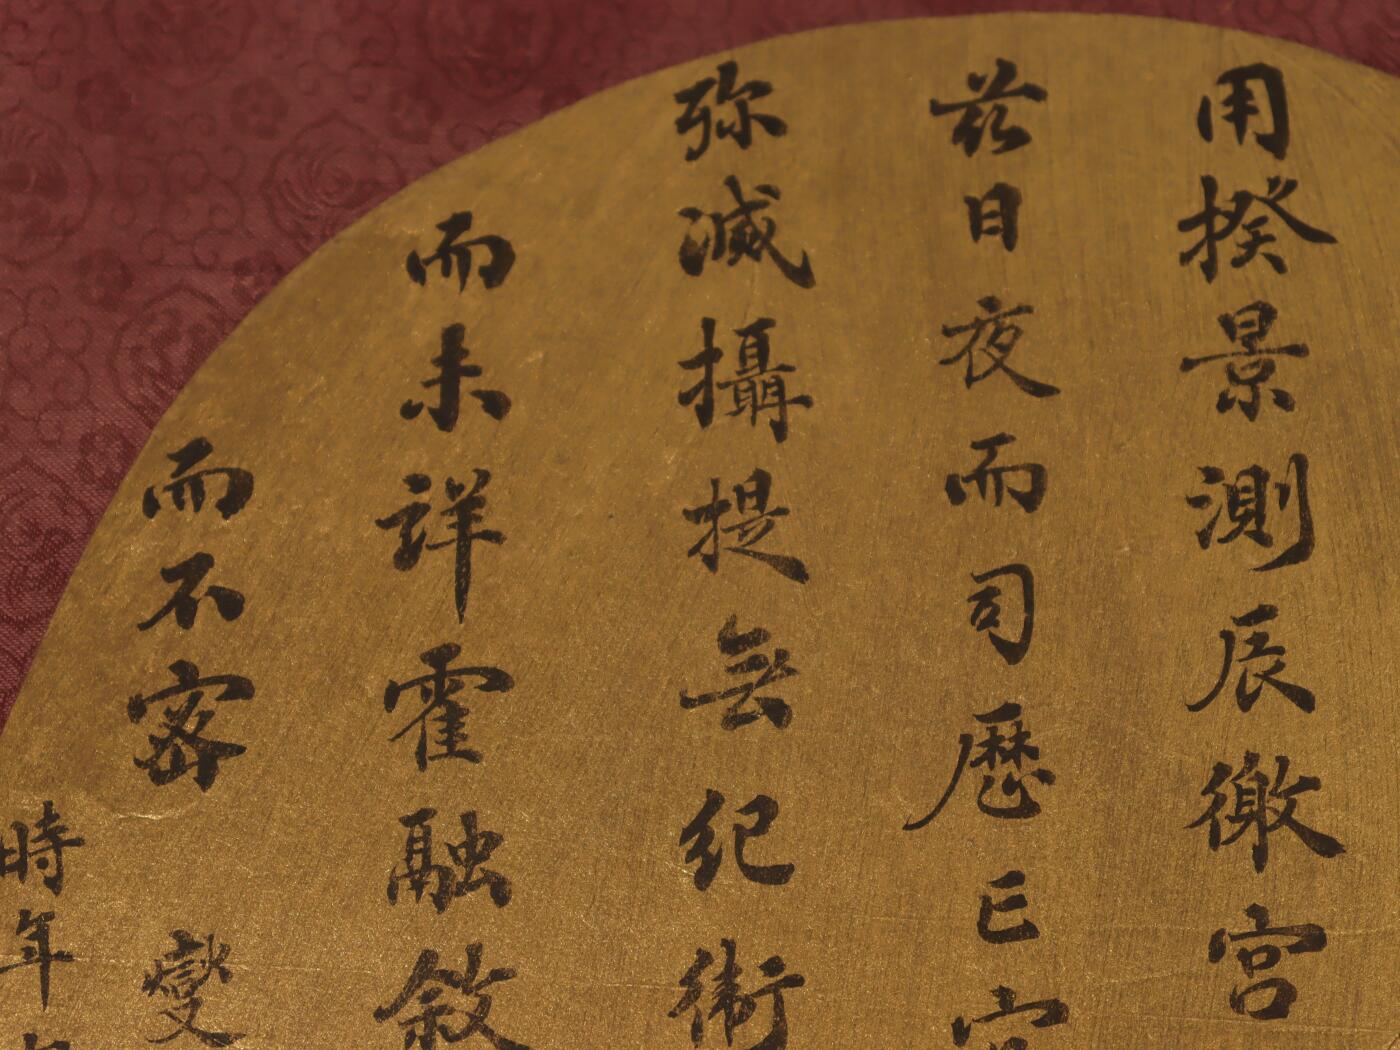 用揆景測辰徹宮
茲日夜而司歷亡官
弥滅攝提無紀衛
而未詳霍融敘
而不密 燮
時年